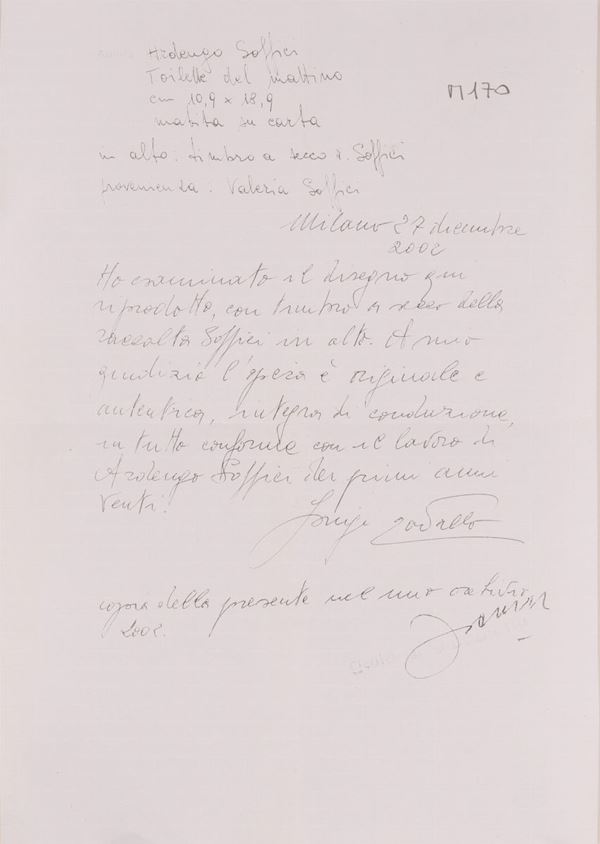 Ardengo Soffici
Toilette del mattino
cm 10,9 x 18,9
matita su carta
M170
in alto: timbro a secco r. Soffici
provenienza: Valeria Soffici
Milano 27 dicembre
2002
Ho esaminato il disegno qui
riprodotto, con timbro a secco della
raccolta Soffici in alto. A mio
giudizio l'opera è originale e
autentica, integra di conduzione,
in tutto conforme con il lavoro di
Ardengo Soffici dei primi anni
Venti.
Luigi Cavallo
copia della presente nel mio archivio
2002.